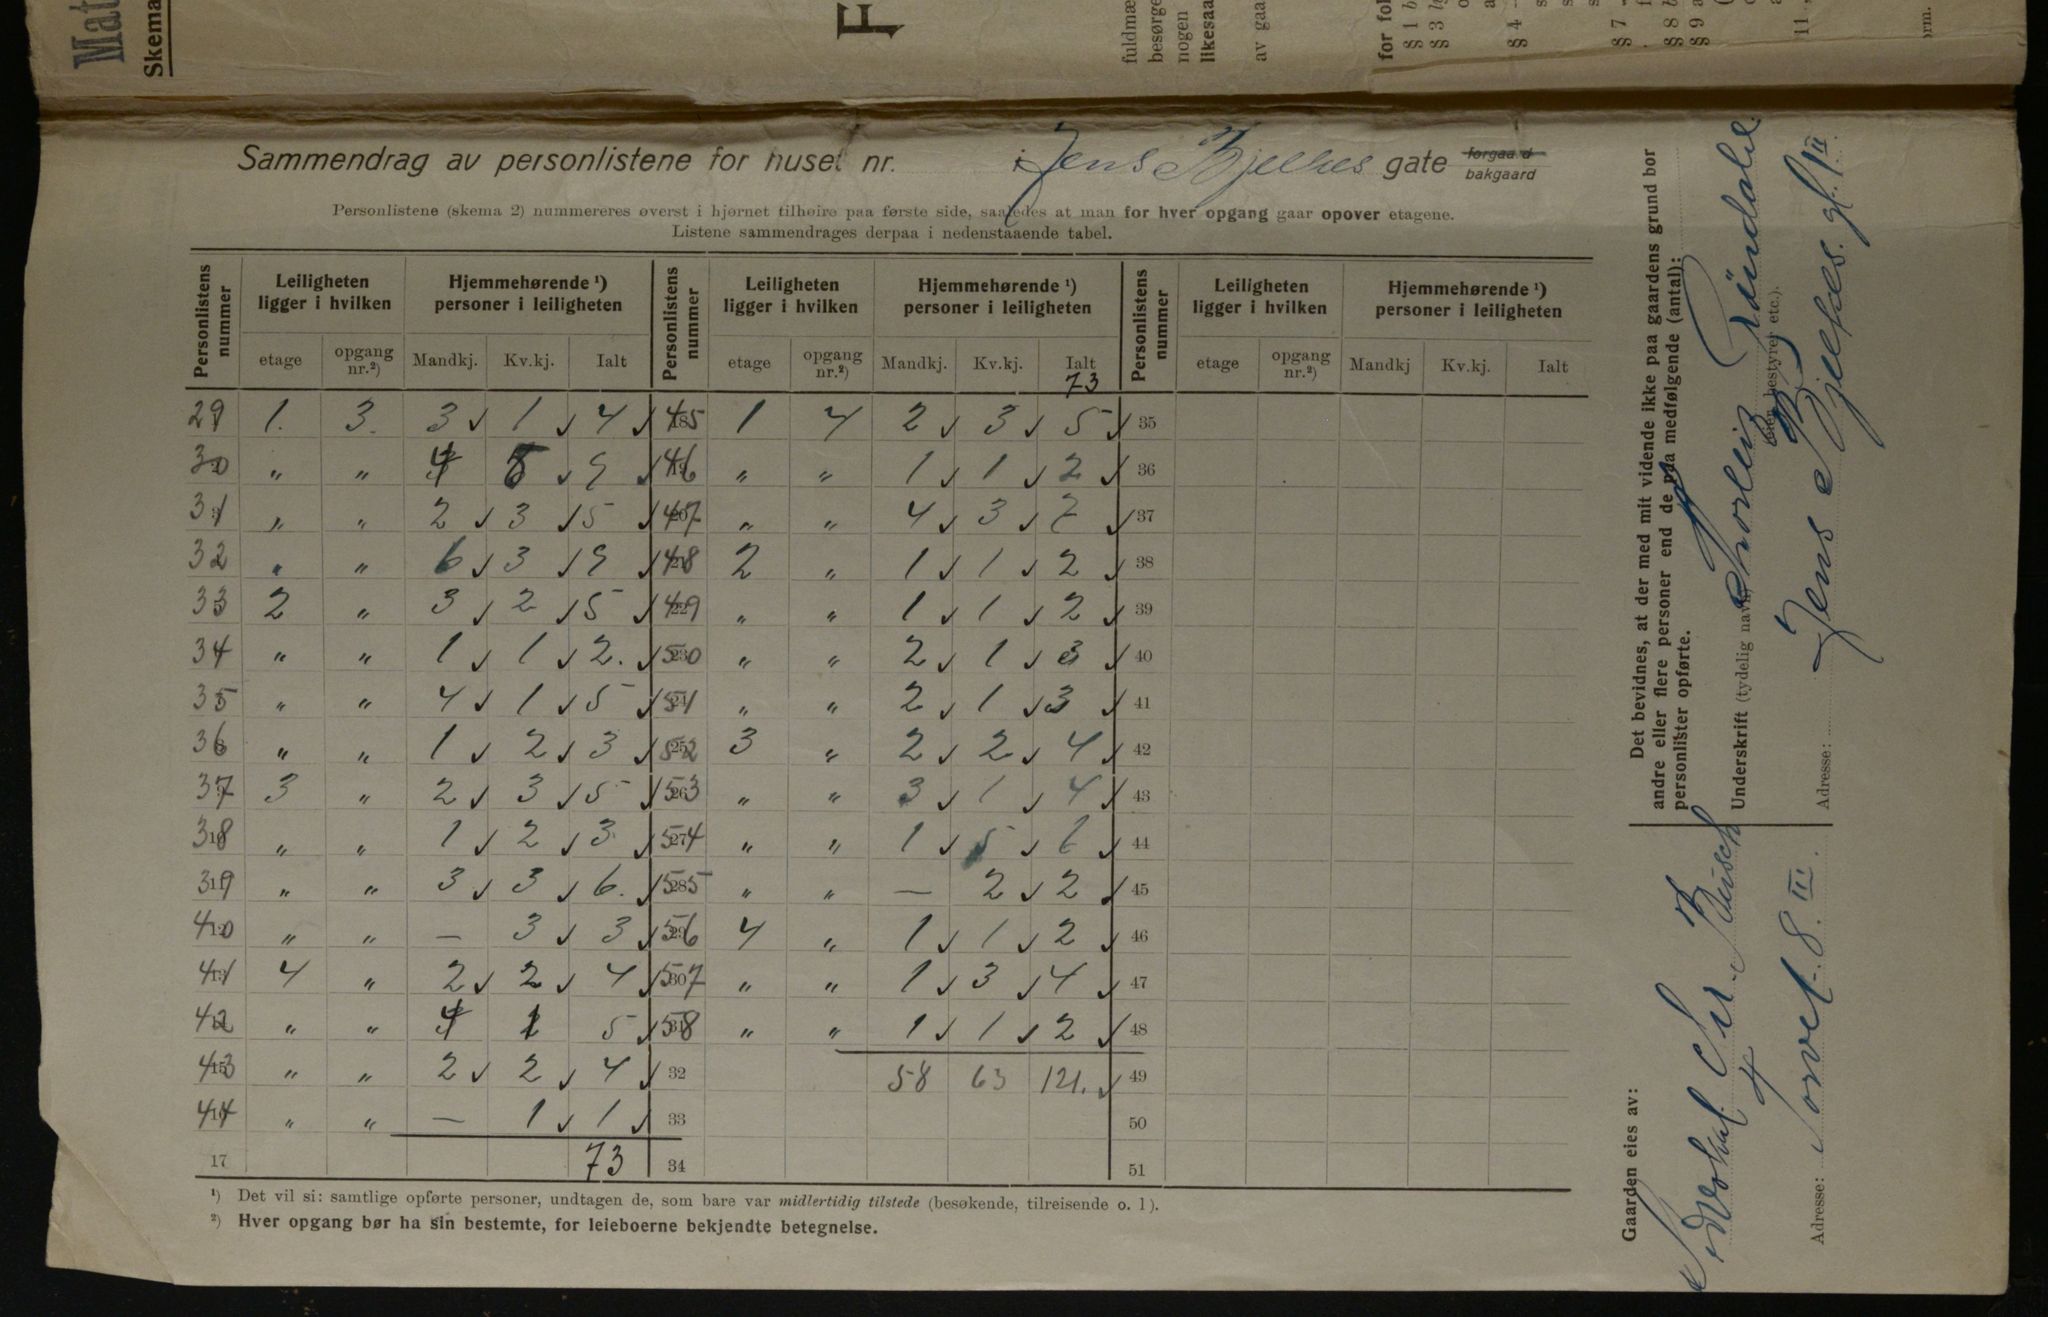 Mat
Skema
F
fuldmæ
besørge
nogen
likesaa
av gaa
for fol
§ 1 b
§ 3
§ 4
§ 7
§ 8 b
§ 9 a
11
orm.
Sammendrag av personlistene for huset nr. i Jens Bjelkes gate forgaard
bakgaard
Personlistene (skema 2) nummereres øverst i hjørnet tilhøire paa første side, saaledes at man for hver opgang gaar opover etagene.
Listene sammendrages derpaa i nedenstaaende tabel.
Personlistens nummer | Leiligheten ligger i hvilken | Hjemmehørende ¹) personer i leiligheten | Personlistens nummer | Leiligheten ligger i hvilken | Hjemmehørende ¹) personer i leiligheten | Personlistens nummer | Leiligheten ligger i hvilken | Hjemmehørende ¹) personer i leiligheten
etage | opgang nr.²) | Mandkj. | Kv.kj. | Ialt | etage | opgang nr.²) | Mandkj. | Kv.kj. | Ialt | etage | opgang nr.²) | Mandkj | Kv.kj. | Ialt
73
29 1. 3. 3 1 4 45 1 4 2 3 5 35
30 " " 4 5 9 46 " " 1 1 2 36
31 " " 2 3 5 47 " " 4 3 7 37
32 " " 6 3 9 48 2 " 1 1 2 38
33 2 " 3 2 5 49 " " 1 1 2 39
34 " " 1 1 2. 50 " " 2 1 3 40
35 " " 4 1 5 51 " " 2 1 3 41
36 " " 1 2 3 52 3 " 2 2 4 42
37 3 " 2 3 5 53 " " 3 1 4 43
38 " " 1 2 3 54 " " 1 5 6 44
39 " " 3 3 6. 55 " " — 2 2 45
40 " " — 3 3 56 4 " 1 1 2 46
41 4 " 2 2 4 57 " " 1 3 4 47
42 " " 4 1 5 58 " " 1 1 2 48
43 " " 2 2 4 32 58 63 121. 49
44 " " — 1 1 33 50
17 73 34 51
¹) Det vil si: samtlige opførte personer, undtagen de, som bare var midlertidig tilstede (besøkende, tilreisende o. l).
²) Hver opgang bør ha sin bestemte, for leieboerne bekjendte betegnelse.
Det bevidnes, at der med mit vidende ikke paa gaardens grund bor
andre eller flere personer end de paa medfølgende (antal):
personlister opførte.
Underskrift (tydelig navn) Thorleif Gründahl
(eier, bestyrer etc.).
Adresse: Jens Bjelkes gt. 1 II
Gaarden eies av:
Chr. Busch
Adresse: Torvet 8. III.